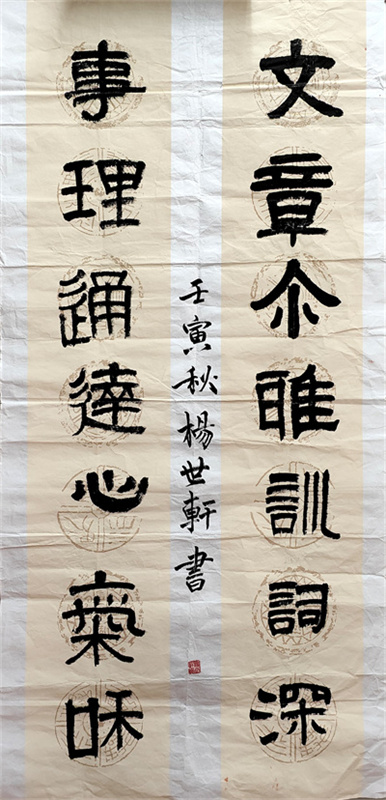 文章尒雅訓詞深
事理通達心氣咊
壬寅秋楊世軒書